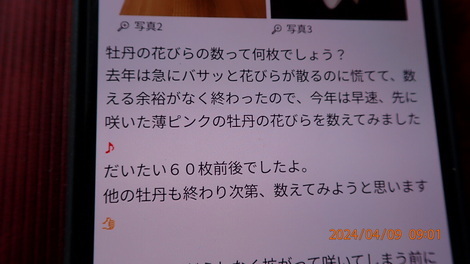 写真2 写真3
牡丹の花びらの数って何枚でしょう？
去年は急にバサッと花びらが散るのに慌てて、数
える余裕がなく終わったので、今年は早速、先に
咲いた薄ピンクの牡丹の花びらを数えてみました
♪
だいたい６０枚前後でしたよ。
他の牡丹も終わり次第、数えてみようと思います
2024/04/09 09:01
なく拡がって咲いてしまう前に